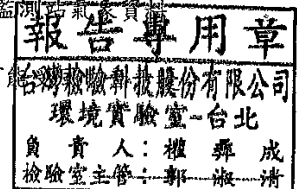 監測站氣象資料
報告專用章
台灣檢驗科技股份有限公司
環境實驗室-台北
負責人：楊彝成
檢驗室主管：郭淑清